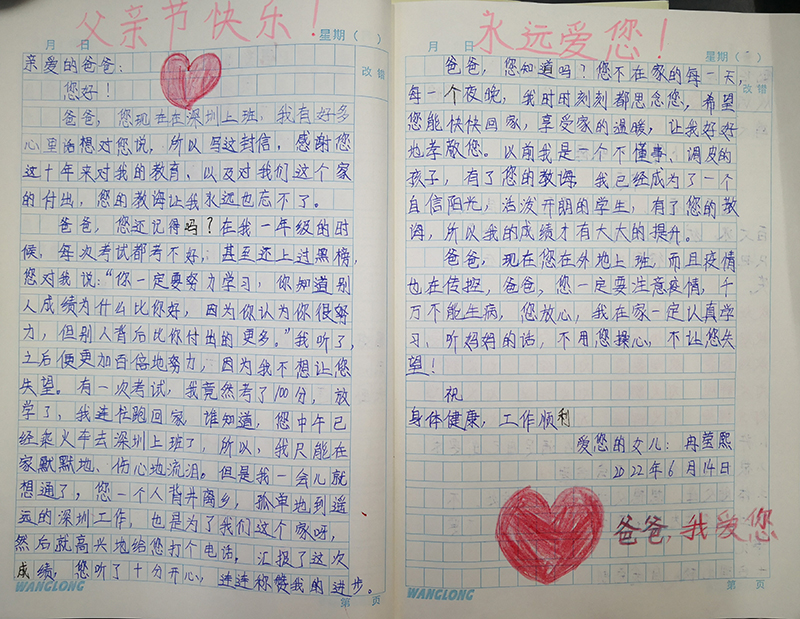 父亲节快乐！
月 日 星期（ ）
亲爱的爸爸：
改 错
您好！
爸爸，您现在在深圳上班，我有好多
心里话想对您说，所以写这封信，感谢您
这十年来对我的教育、以及对我们这个家
的付出，您的教诲让我永远也忘不了。
爸爸，您还记得吗？在我一年级的时
候，每次考试都考不好，甚至还上过黑榜，
您对我说：“你一定要努力学习，你知道别
人成绩为什么比你好，因为你认为你很努
力，但别人背后比你付出的更多。”我听了，
之后便更加百倍地努力，因为我不想让您
失望。有一次考试，我竟然考了100分，放
学了，我连忙跑回家，谁知道，您中午已
经乘火车去深圳上班了，所以，我只能在
家默默地、伤心地流泪。但是我一会儿就
想通了，您一个人背井离乡，孤单地到遥
远的深圳工作，也是为了我们这个家呀，
然后就高兴地给您打个电话，汇报了这次
成绩，您听了十分开心，连连称赞我的进步。
WANGLONG
第 页
永远爱您！
月 日 星期（ ）
爸爸，您知道吗？您不在家的每一天，
改 错
每一个夜晚，我时时刻刻都思念您，希望
您能快快回家，享受家的温暖，让我好好
地孝敬您。以前我是一个不懂事、调皮的
孩子，有了您的教诲，我已经成为了一个
自信阳光，活泼开朗的学生，有了您的教
诲，所以我的成绩才有大大的提升。
爸爸，现在您在外地上班，而且疫情
也在传控，爸爸，您一定要注意疫情，千
万不能生病，您放心，我在家一定认真学
习、听妈妈的话，不用您操心，不让您失
望！
祝
身体健康，工作顺利
爱您的女儿：冉莹熙
2022年6月14日
爸爸，我爱您
WANGLONG
第 页